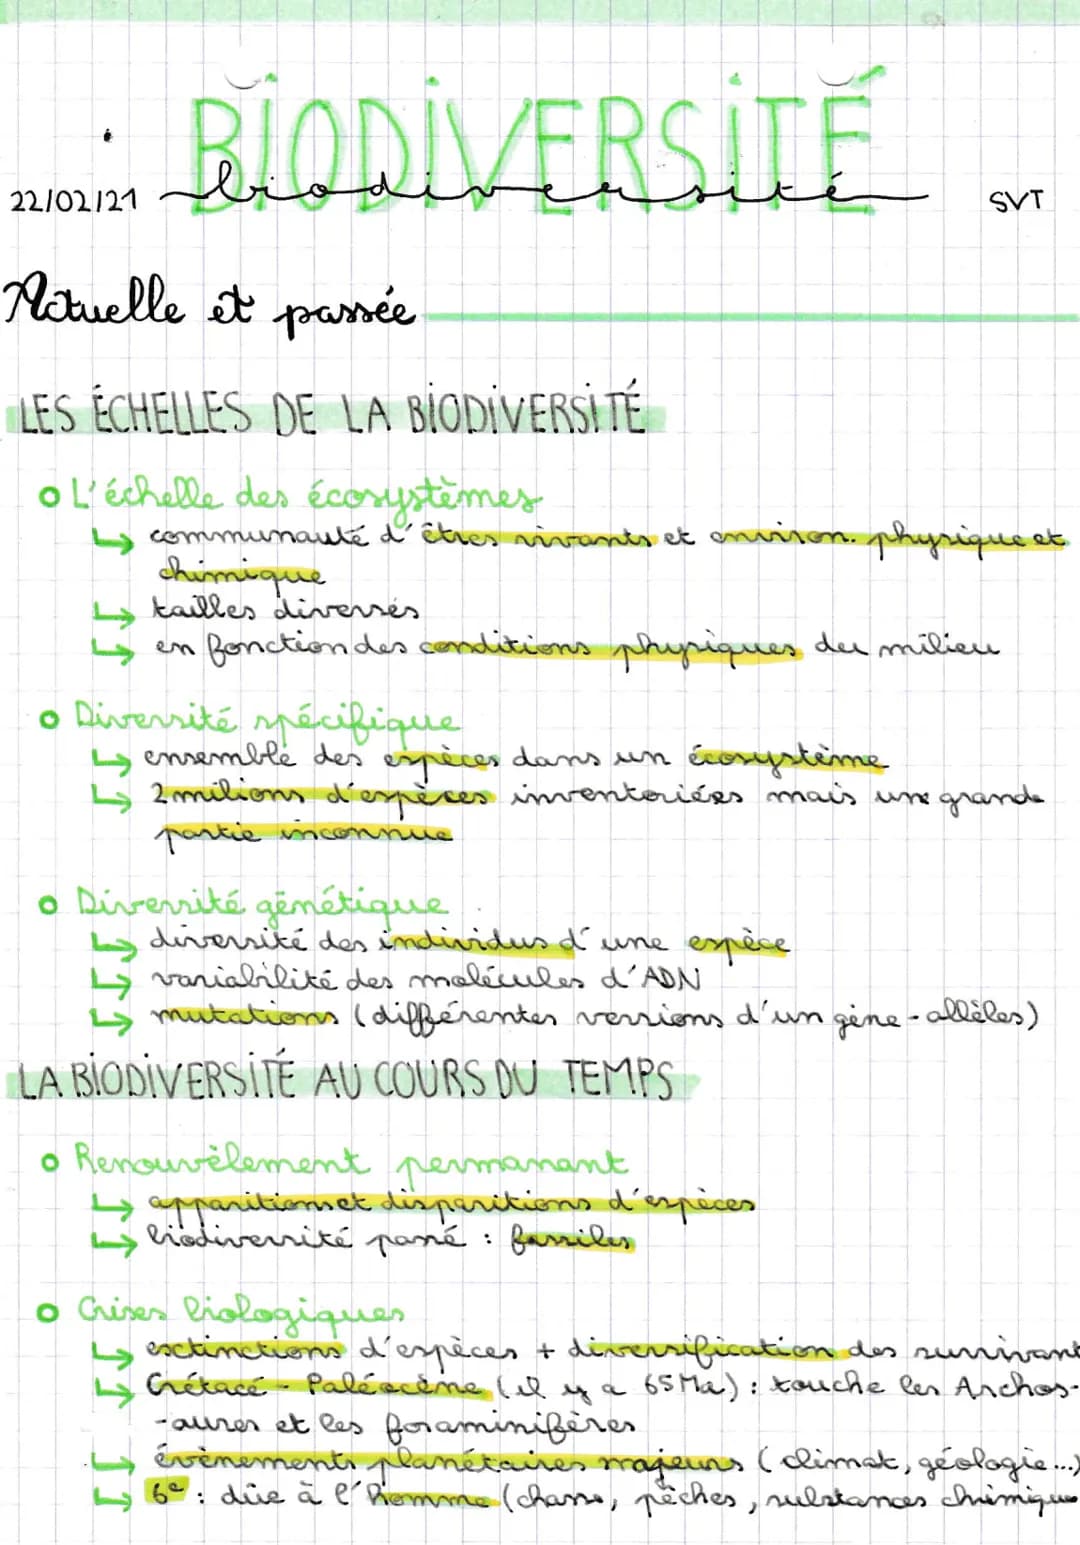 BIODIVERSITÉ
22/02/21 biodiversité SVT
Actuelle et passée
LES ÉCHELLES DE LA BIODIVERSITÉ
L'échelle des écosystèmes
↳ communauté d'êtres vivants et environ. physique et
chimique
↳ tailles diverses
↳ en fonction des conditions physiques du milieu
Diversité spécifique
↳ ensemble des espèces dans un écosystème
↳ 2 milions d'espèces inventoriées mais une grande
partie inconnue
Diversité génétique
↳ diversité des individus d'une espèce
↳ variabilité des molécules d'ADN
↳ mutations (différentes versions d'un gène - allèles)
LA BIODIVERSITÉ AU COURS DU TEMPS
Renouvèlement permanant
↳ apparitions et disparitions d'espèces
↳ biodiversité passé : fossiles
Crises biologiques
↳ esctinctions d'espèces + diversification des survivant
↳ Crétacé - Paléocène (il y a 65 Ma) : touche les Archos-
-aures et les foraminifères
↳ évènements planétaires majeurs (climat, géologie...)
↳ 6e : dûe à l'homme (chasse, pêches, substances chimiques